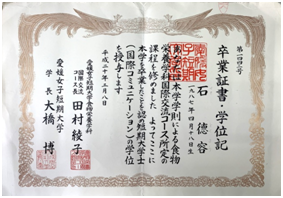 第一四四三号
卒業証書・学位記
石 徳容
一九八七年 四月十八日生
本学学則による食物
栄養学科国際交流コース所定の
課程を修めました よってここに
本学を卒業したことを認め短期大学士
(国際コミュニケーション)の学位
を授与します
平成二十年三月八日
愛媛女子短期大学食物栄養学科
国際交流
コース長 田村綾子
愛媛女子短期大学
学長 大橋 博